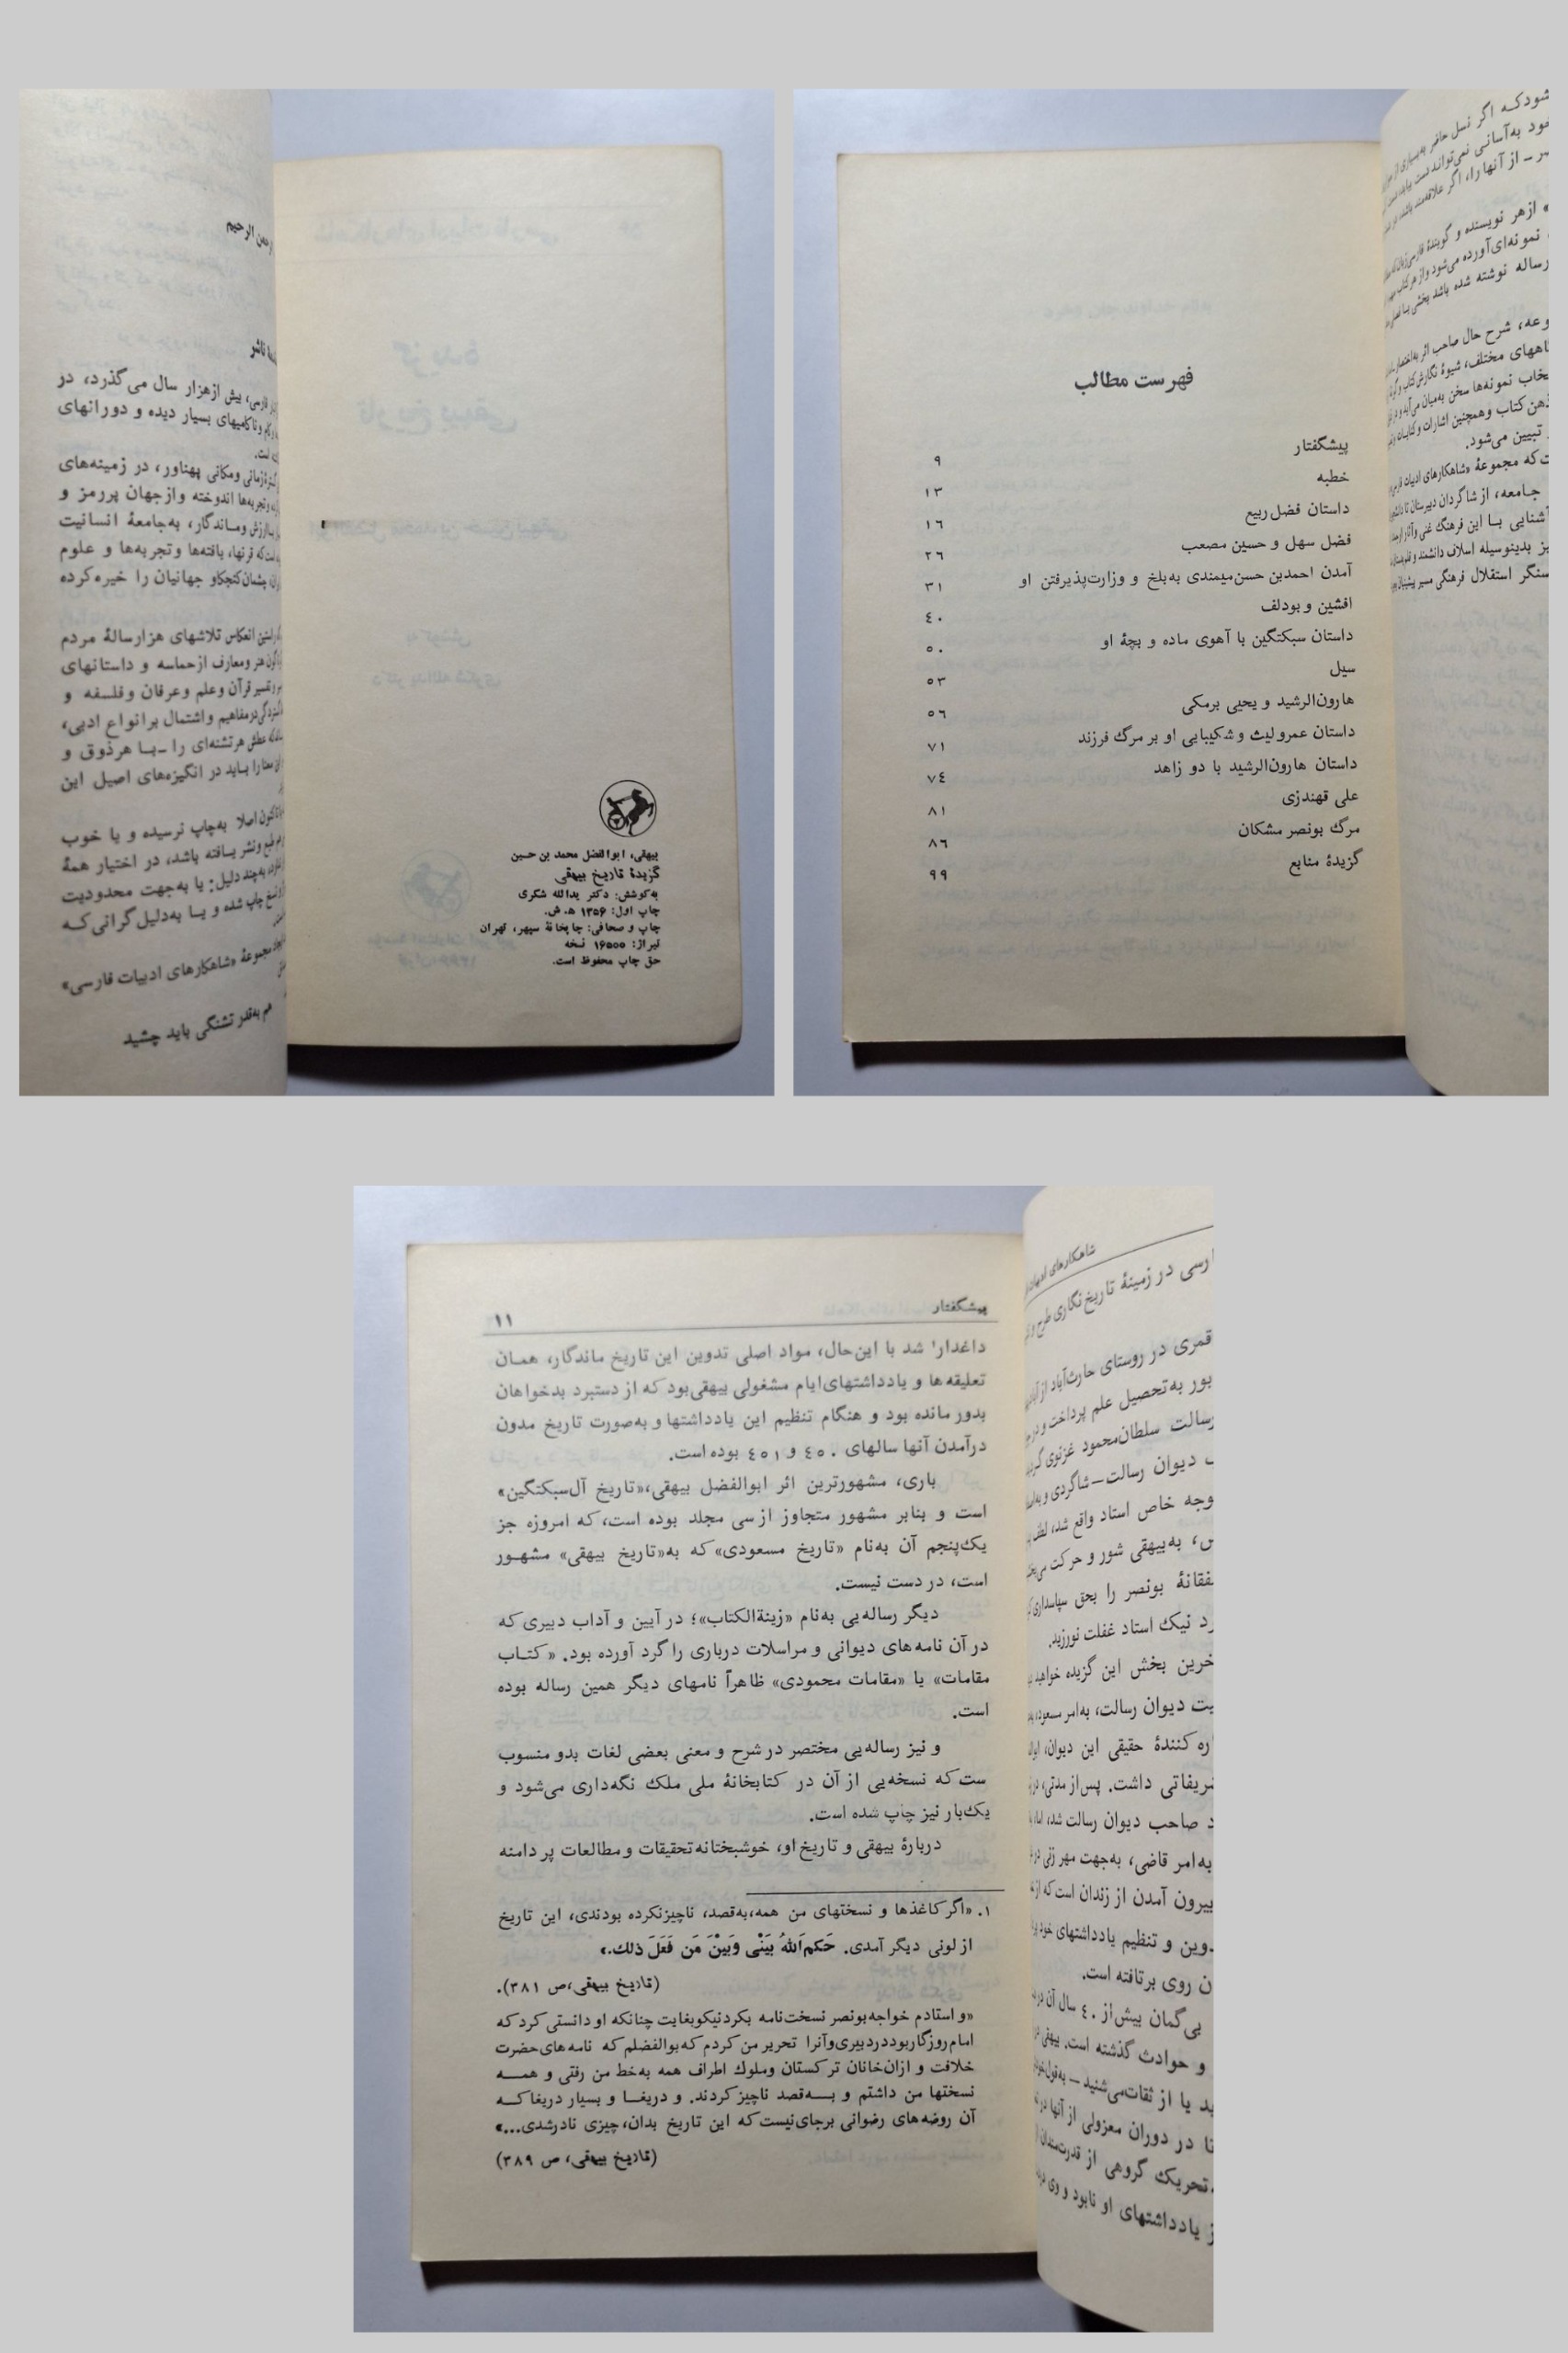 رحمن الرحیم
ناشر
فارسی، بیش از هزار سال می‌گذرد، در
و ناکامیهای بسیار دیده و دورانهای
است.
زمانی و مکانی پهناور، در زمینه‌های
و تجربه‌ها اندوخته و از جهان پررمز و
باارزش و ماندگار، به‌جامعهٔ انسانیت
است که قرنها، یافته‌ها و تجربه‌ها و علوم
چشمان کنجکاو جهانیان را خیره کرده
انعکاس تلاشهای هزارسالهٔ مردم
هنر و معارف از حماسه و داستانهای
و تفسیر قرآن و علم و عرفان و فلسفه و
در مفاهیم و اشتمال بر انواع ادبی،
عطش هر تشنه‌ای را ـ با هر ذوق و
را باید در انگیزه‌های اصیل این
تاکنون اصلا به‌چاپ نرسیده و یا خوب
طبع و نشر یافته باشد، در اختیار همهٔ
به‌چند دلیل: یا به‌جهت محدودیت
چاپ شده و یا به‌دلیل گرانی که
مجموعهٔ «شاهکارهای ادبیات فارسی»
هم به‌قدر تشنگی باید چشید
بیهقی، ابوالفضل محمد بن حسین
گزیدهٔ تاریخ بیهقی
به‌کوشش: دکتر یدالله شکری
چاپ اول: ۱۳۵۶ ه‍. ش.
چاپ و صحافی: چاپخانهٔ سپهر، تهران
تیراژ: ۱۶۵۰۰ نسخه
حق چاپ محفوظ است.
فهرست مطالب
پیشگفتار ۹
خطبه ۱۳
داستان فضل ربیع ۱۶
فضل سهل و حسین مصعب ۲۶
آمدن احمدبن حسن میمندی به‌بلخ و وزارت پذیرفتن او ۳۱
افشین و بودلف ۴۰
داستان سبکتگین با آهوی ماده و بچهٔ او ۵۰
سیل ۵۳
هارون‌الرشید و یحیی برمکی ۵۶
داستان عمرولیث و شکیبایی او بر مرگ فرزند ۷۱
داستان هارون‌الرشید با دو زاهد ۷۴
علی قهندزی ۸۱
مرگ بونصر مشکان ۸۶
گزیدهٔ منابع ۹۹
شودکه اگر نسل حاضر
خود به‌آسانی نمی‌تواند دست
ـ از آنها را، اگر علاقه‌مند باشد
از هر نویسنده و گویندهٔ فارسی‌زبان
نمونه‌ای آورده می‌شود و از هر کتاب
رساله نوشته شده باشد بخشی
شرح حال صاحب اثر به‌اختصار
مختلف، شیوهٔ نگارش کتاب و
نمونه‌ها سخن به‌میان می‌آید
کتاب و همچنین اشارات و کنایات
تبیین می‌شود.
که مجموعهٔ «شاهکارهای ادبیات
جامعه، از شاگردان دبیرستان تا
آشنایی با این فرهنگ غنی و آثار
بدینوسیله اسلاف دانشمند و
سنگر استقلال فرهنگی مسیر
پیشگفتار ۱۱
داغدار۱ شد با این‌حال، مواد اصلی تدوین این تاریخ ماندگار، همان
تعلیقه‌ها و یادداشتهای ایام مشغولی بیهقی بود که از دستبرد بدخواهان
بدور مانده بود و هنگام تنظیم این یادداشتها و به‌صورت تاریخ مدون
درآمدن آنها سالهای ۴۵۰ و ۴۵۱ بوده است.
باری، مشهورترین اثر ابوالفضل بیهقی، «تاریخ آل‌سبکتگین»
است و بنابر مشهور متجاوز از سی مجلد بوده است، که امروزه جز
یک‌پنجم آن به‌نام «تاریخ مسعودی» که به «تاریخ بیهقی» مشهور
است، در دست نیست.
دیگر رساله‌یی به‌نام «زینةالکتاب»؛ در آیین و آداب دبیری که
در آن نامه‌های دیوانی و مراسلات درباری را گرد آورده بود. «کتاب
مقامات» یا «مقامات محمودی» ظاهراً نامهای دیگر همین رساله بوده
است.
و نیز رساله‌یی مختصر در شرح و معنی بعضی لغات بدو منسوب
ست که نسخه‌یی از آن در کتابخانهٔ ملی ملک نگه‌داری می‌شود و
یک‌بار نیز چاپ شده است.
دربارهٔ بیهقی و تاریخ او، خوشبختانه تحقیقات و مطالعات پر دامنه
۱. «اگر کاغذها و نسختهای من همه، به‌قصد، ناچیز نکرده بودندی، این تاریخ
از لونی دیگر آمدی. حَکَم‌اَللهُ بَیْنی وَبَیْنَ مَن فَعَلَ ذلك.»
(تاریخ بیهقی، ص ۳۸۱).
«و استادم خواجه بونصر نسخت نامه بکرد نیکو بغایت چنانکه او دانستی کرد که
امام روزگار بود در دبیری و آنرا تحریر من کردم که بوالفضلم که نامه‌های حضرت
خلافت و ازان خانان ترکستان و ملوك اطراف همه به‌خط من رفتی و همه
نسختها من داشتم و به‌قصد ناچیز کردند. و دریغا و بسیار دریغا که
آن روضه‌های رضوانی برجای نیست که این تاریخ بدان، چیزی نادر شدی...»
(تاریخ بیهقی، ص ۳۸۹)
شاهکارهای ادبیات
در زمینهٔ تاریخ‌نگاری طرح و
قمری در روستای حارث‌آباد از
به‌تحصیل علم پرداخت و در
رسالت سلطان‌محمود غزنوی
دیوان رسالت ـ شاگردی و
خاص استاد واقع شد، لطف
به‌بیهقی شور و حرکت
بونصر را بحق سپاسداری
نیک استاد غفلت نورزید.
بخش این گزیده خواهید
دیوان رسالت، به‌امر مسعود،
کنندهٔ حقیقی این دیوان،
داشت. پس از مدتی،
صاحب دیوان رسالت شد، اما
به‌امر قاضی، به‌جهت مهر زنی
بیرون آمدن از زندان است که
و تنظیم یادداشتهای خود
روی برتافته است.
بی‌گمان بیش از ۴۰ سال آن
و حوادث گذشته است. بیهقی
یا از ثقات می‌شنید ـ به‌قول
در دوران معزولی از آنها
تحریک گروهی از قدرتمندان
یادداشتهای او نابود و وی